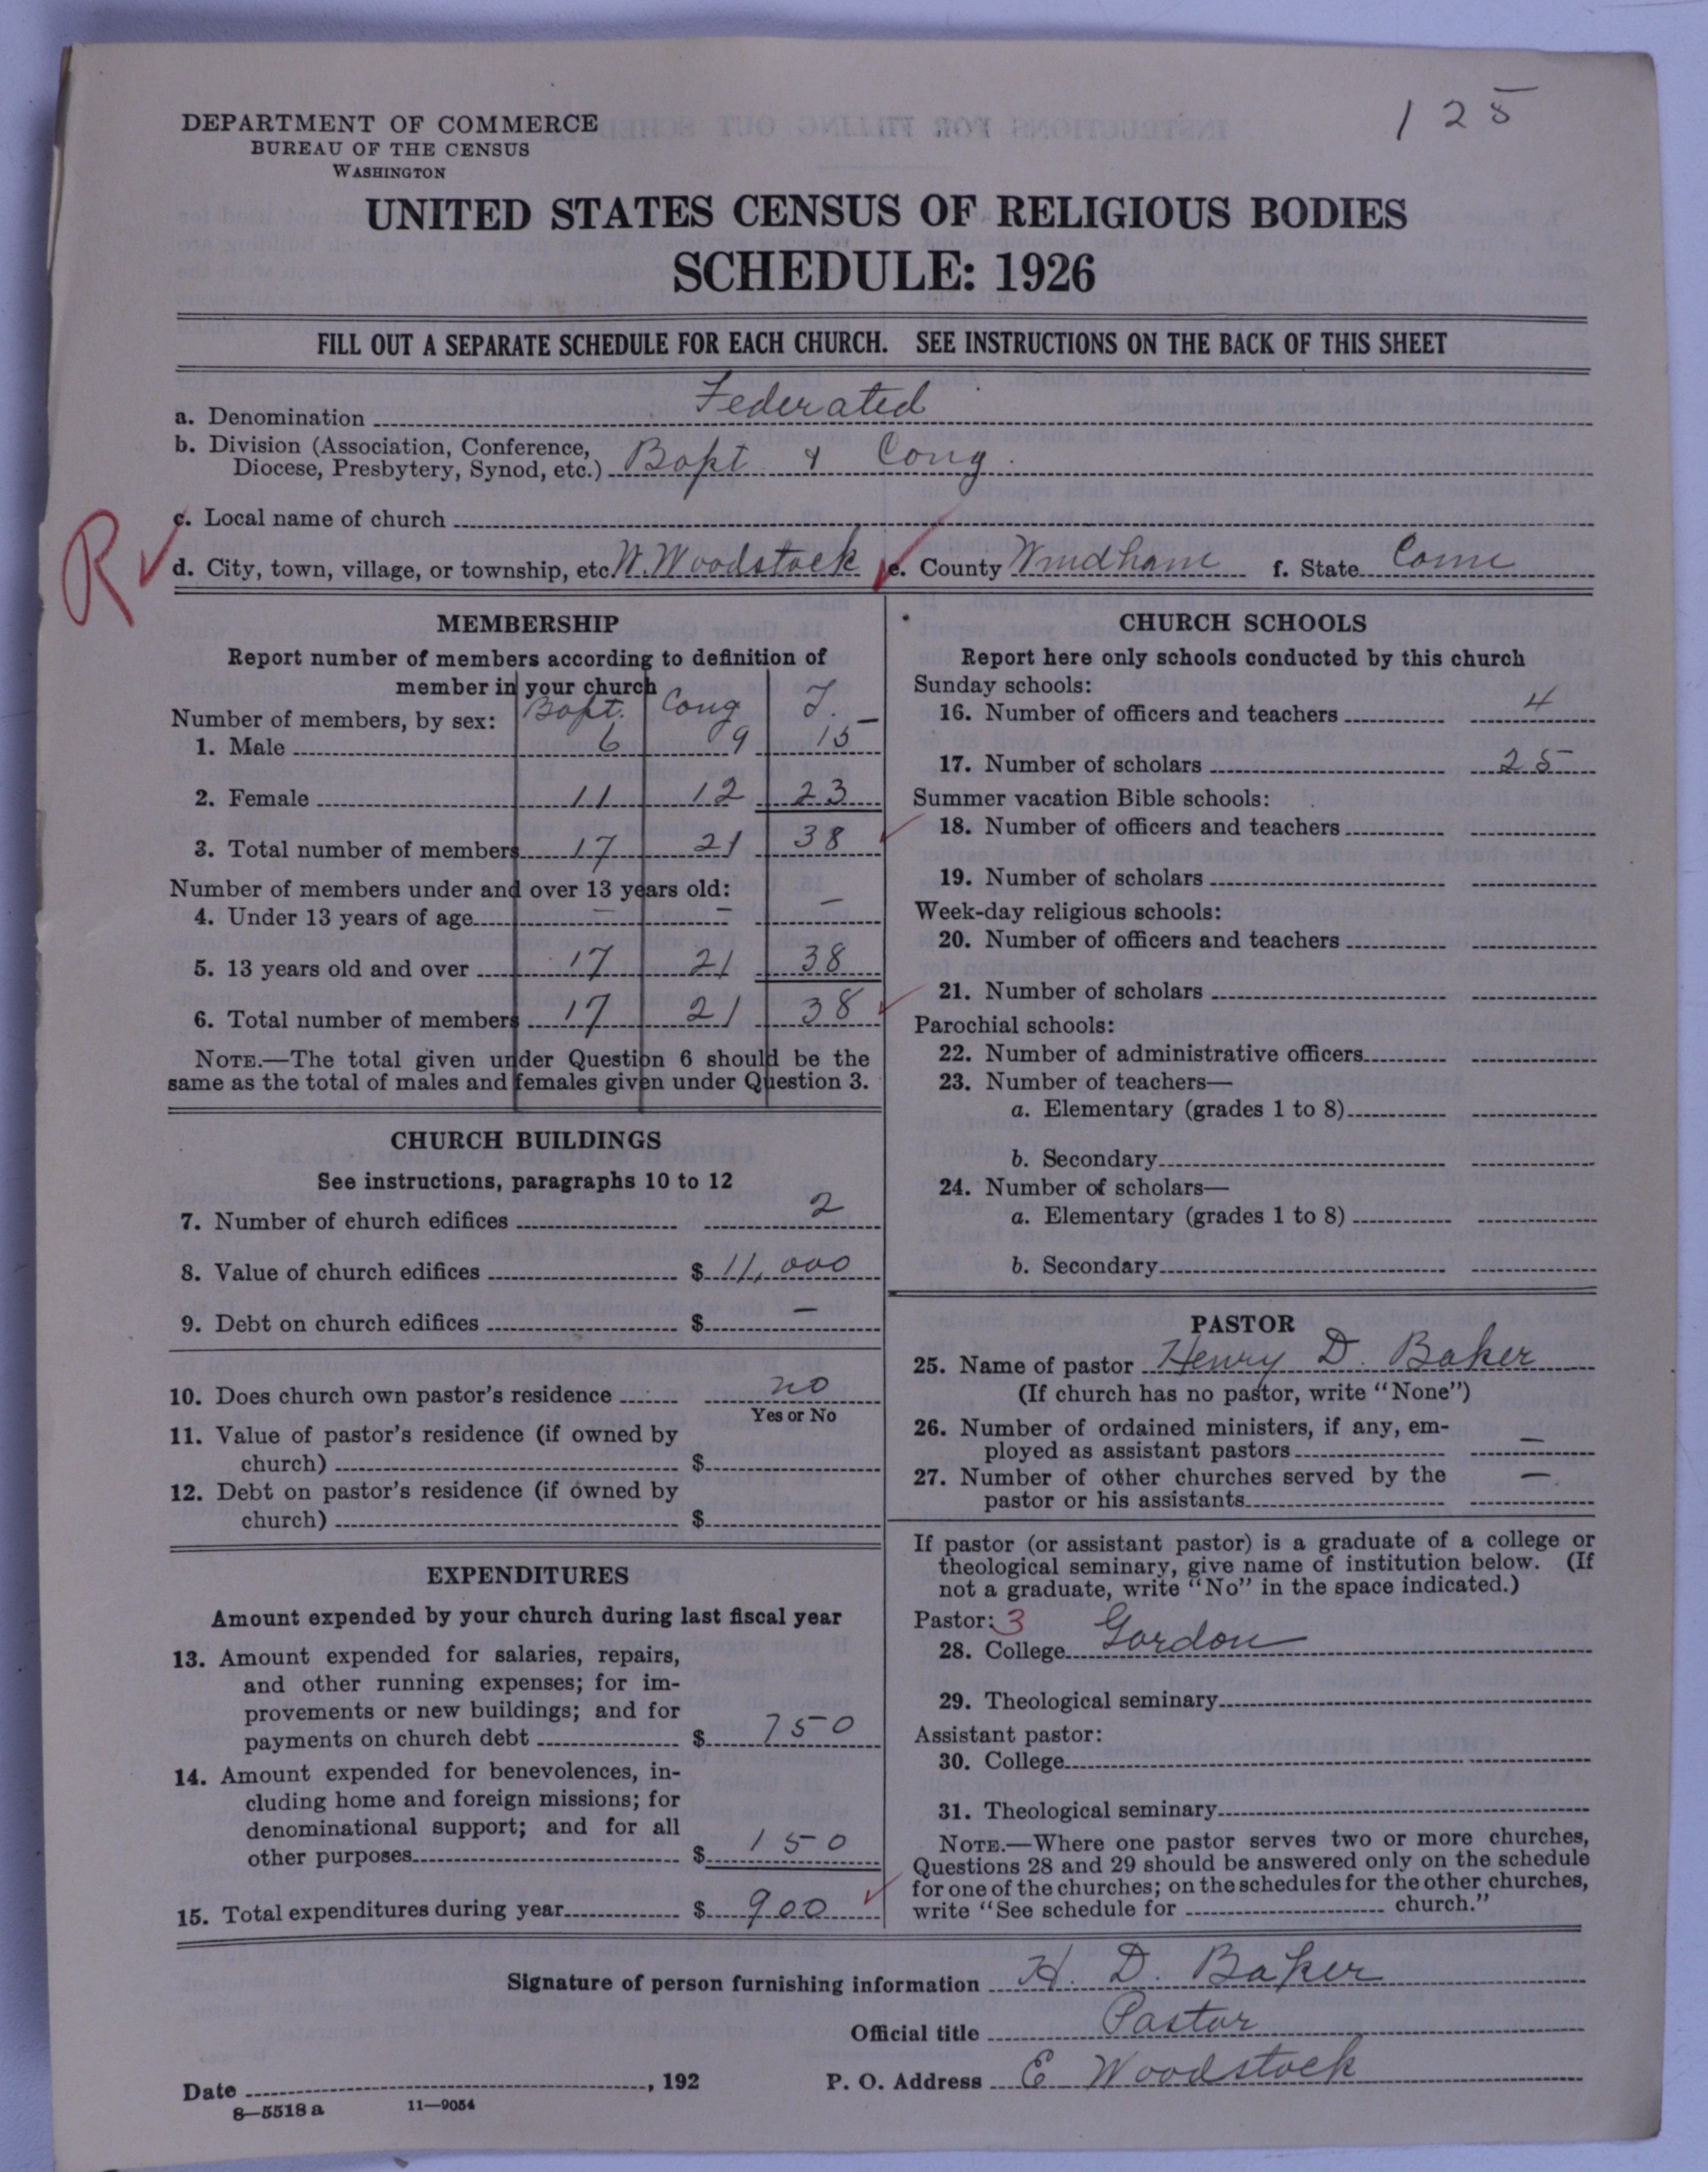 125
DEPARTMENT OF COMMERCE
BUREAU OF THE CENSUS
WASHINGTON
UNITED STATES CENSUS OF RELIGIOUS BODIES
SCHEDULE: 1926
FILL OUT A SEPARATE SCHEDULE FOR EACH CHURCH. SEE INSTRUCTIONS ON THE BACK OF THIS SHEET
a. Denomination Federated
b. Division (Association, Conference,
Diocese, Presbytery, Synod, etc.) Bapt & Cong.
c. Local name of church
R
d. City, town, village, or township, etc. W. Woodstock e. County Windham f. State Conn
MEMBERSHIP
Report number of members according to definition of
member in your church
Bapt. Cong T.
Number of members, by sex:
1. Male 6 9 15
2. Female 11 12 23
3. Total number of members 17 21 38
Number of members under and over 13 years old:
4. Under 13 years of age – – –
5. 13 years old and over 17 21 38
6. Total number of members 17 21 38
NOTE.—The total given under Question 6 should be the
same as the total of males and females given under Question 3.
CHURCH BUILDINGS
See instructions, paragraphs 10 to 12
7. Number of church edifices 2
8. Value of church edifices $ 11,000
9. Debt on church edifices $ –
10. Does church own pastor's residence no
Yes or No
11. Value of pastor's residence (if owned by
church) $
12. Debt on pastor's residence (if owned by
church) $
EXPENDITURES
Amount expended by your church during last fiscal year
13. Amount expended for salaries, repairs,
and other running expenses; for im-
provements or new buildings; and for
payments on church debt $ 750
14. Amount expended for benevolences, in-
cluding home and foreign missions; for
denominational support; and for all
other purposes $ 150
15. Total expenditures during year $ 900
CHURCH SCHOOLS
Report here only schools conducted by this church
Sunday schools:
16. Number of officers and teachers 4
17. Number of scholars 25
Summer vacation Bible schools:
18. Number of officers and teachers
19. Number of scholars
Week-day religious schools:
20. Number of officers and teachers
21. Number of scholars
Parochial schools:
22. Number of administrative officers
23. Number of teachers—
a. Elementary (grades 1 to 8)
b. Secondary
24. Number of scholars—
a. Elementary (grades 1 to 8)
b. Secondary
PASTOR
25. Name of pastor Henry D. Baker
(If church has no pastor, write "None")
26. Number of ordained ministers, if any, em-
ployed as assistant pastors –
27. Number of other churches served by the
pastor or his assistants –
If pastor (or assistant pastor) is a graduate of a college or
theological seminary, give name of institution below. (If
not a graduate, write "No" in the space indicated.)
Pastor: 3
28. College Gordon
29. Theological seminary
Assistant pastor:
30. College
31. Theological seminary
NOTE.—Where one pastor serves two or more churches,
Questions 28 and 29 should be answered only on the schedule
for one of the churches; on the schedules for the other churches,
write "See schedule for church."
Signature of person furnishing information H. D. Baker
Official title Pastor
Date , 192 P. O. Address E Woodstock
8—5518a 11—9054